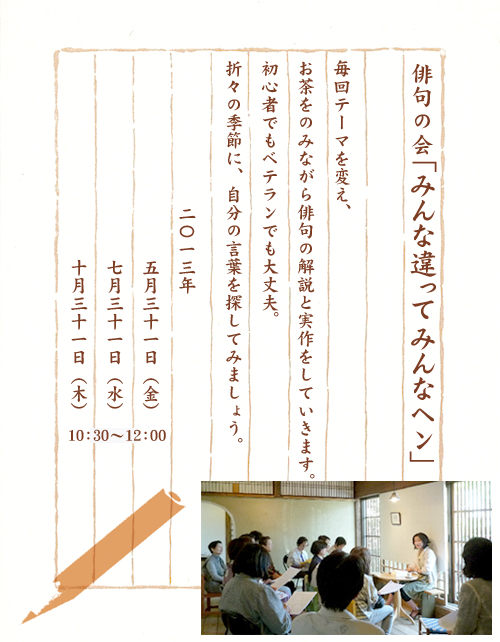 俳句の会「みんな違ってみんなヘン」
毎回テーマを変え、
お茶をのみながら俳句の解説と実作をしていきます。
初心者でもベテランでも大丈夫。
折々の季節に、自分の言葉を探してみましょう。
二〇一三年
五月三十一日（金）
七月三十一日（水）
十月三十一日（木）
10:30～12:00